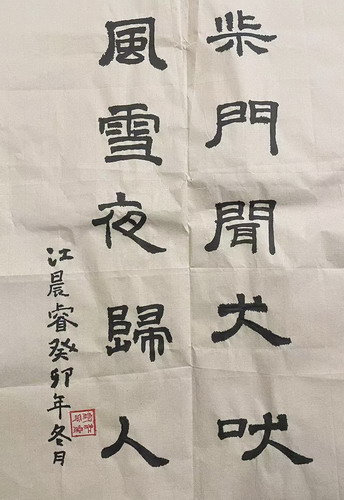 柴門聞犬吠
風雪夜歸人
江晨睿癸卯年冬月